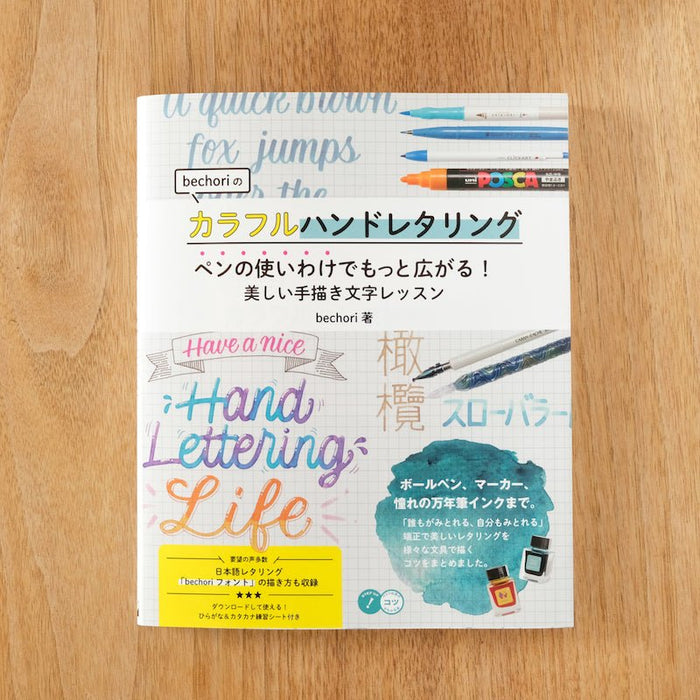 a quick brown
fox jumps
over the
POSCA
uni
bechoriの
カラフルハンドレタリング
ペンの使いわけでもっと広がる！
美しい手描き文字レッスン
bechori 著
Have a nice
Hand
Lettering
Life
橄
欖
スローバラー
ボールペン、マーカー、
憧れの万年筆インクまで。
「誰もがみとれる、自分もみとれる」
端正で美しいレタリングを
様々な文具で描く
コツをまとめました。
要望の声多数
日本語レタリング
「bechori フォント」の描き方も収録
★★★
ダウンロードして使える！
ひらがな＆カタカナ練習シート付き
STEP UP
コツ